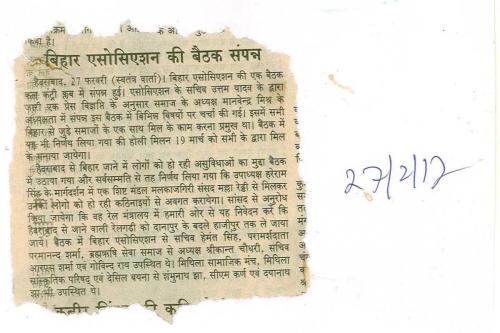 बिहार एसोसिएशन की बैठक संपन्न
हैदराबाद, 27 फरवरी (स्वतंत्र वार्ता)। बिहार एसोसिएशन की एक बैठक
कल कंट्री क्लब में संपन्न हुई। एसोसिएशन के सचिव उत्तम यादव के द्वारा
जारी एक प्रेस विज्ञप्ति के अनुसार समाज के अध्यक्ष मानवेन्द्र मिश्र के
अध्यक्षता में संपन्न इस बैठक में बिभिन्न बिषयों पर चर्चा की गई। इसमें सभी
बिहार से जुड़े समाजों के एक साथ मिल के काम करना प्रमुख था। बैठक में
यह भी निर्णय लिया गया की होली मिलन 19 मार्च को सभी के द्वारा मिल
के मनाया जायेगा।
हैदराबाद से बिहार जाने में लोगों को हो रही असुविधाओं का मुद्दा बैठक
में उठाया गया और सर्वसम्मति से तह निर्णय लिया गया कि उपाध्यक्ष हरेराम
सिंह के मार्गदर्शन में एक शिष्ट मंडल मलकाजगिरी संसद मल्ला रेड्डी से मिलकर
उनको लोगों को हो रही कठिनाइयों से अवगत करायेगा। सांसद से अनुरोध
किया जायेगा कि वह रेल मंत्रालय में हमारी ओर से यह निवेदन करें कि
हैदराबाद से जाने वाली रेलगाड़ी को दानापुर के बदले हाजीपुर तक ले जाया
जाये। बैठक में बिहार एसोसिएशन से सचिव हेमंत सिंह, परामर्शदाता
परमानन्द शर्मा, ब्रह्मऋषि सेवा समाज से अध्यक्ष श्रीकान्त चौधरी, सचिव
आरएस शर्मा एवं गोविन्द राय उपस्थित थे। मिथिला सामाजिक मंच, मिथिला
सांस्कृतिक परिषद् एवं देसिल बयना से शंभुनाथ झा, सीएम कर्ण एवं दयानाथ
झा भी उपस्थित थे।
27/2/17